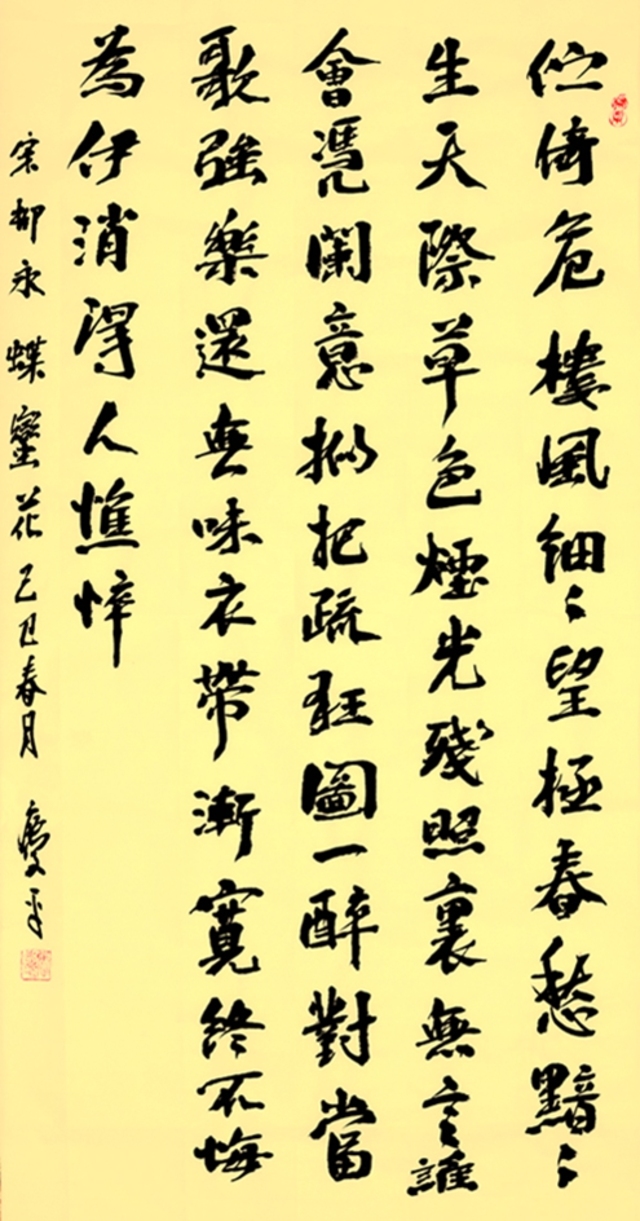 伫倚危樓風細〻望極春愁黯〻
生天際草色煙光殘照裏無言誰
會凴闌意拟把疏狂圖一醉對當
歌強樂還無味衣帶漸寬終不悔
為伊消得人憔悴
宋柳永蝶戀花己丑春月 慶平